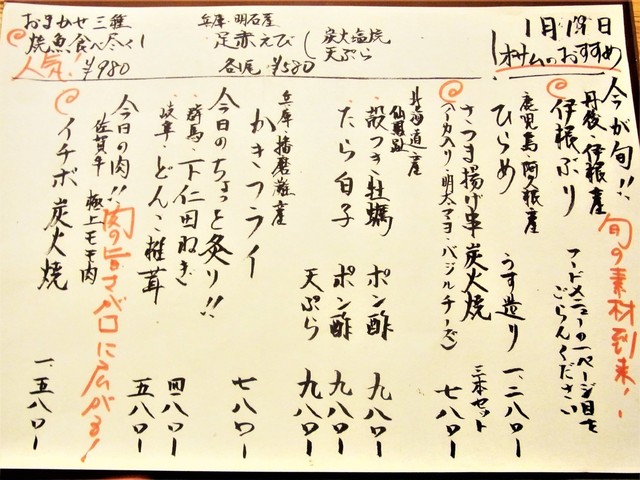 1月19日
村山のおすすめ
兵庫・明石産
足赤えび
炭火塩焼
天ぷら
各1尾 ¥580
おまかせ三種
焼魚食べ尽くし
人気! ¥980
今が旬!!
旬の素材到来!
丹後・伊根産
伊根ぶり
フードメニューの一ページ目を
ごらんください
鹿児島・阿久根産
ひらめ うす造り 一、二八〇ー
さつま揚げ串炭火焼 三本セット 七八〇ー
(イカ入り・明太マヨ・バジルチーズ)
北海道産
仙鳳趾
殻つき牡蠣 ポン酢 九八〇ー
たら白子 ポン酢 九八〇ー
天ぷら 九八〇ー
兵庫・播磨灘産
かきフライ 七八〇ー
今日のちょっと炙り!!
群馬 下仁田ねぎ 四八〇ー
岐阜 どんこ椎茸 五八〇ー
今日の肉!!
肉の旨さが口に広がる!
佐賀牛 極上モモ肉
イチボ炭火焼 一、五八〇ー